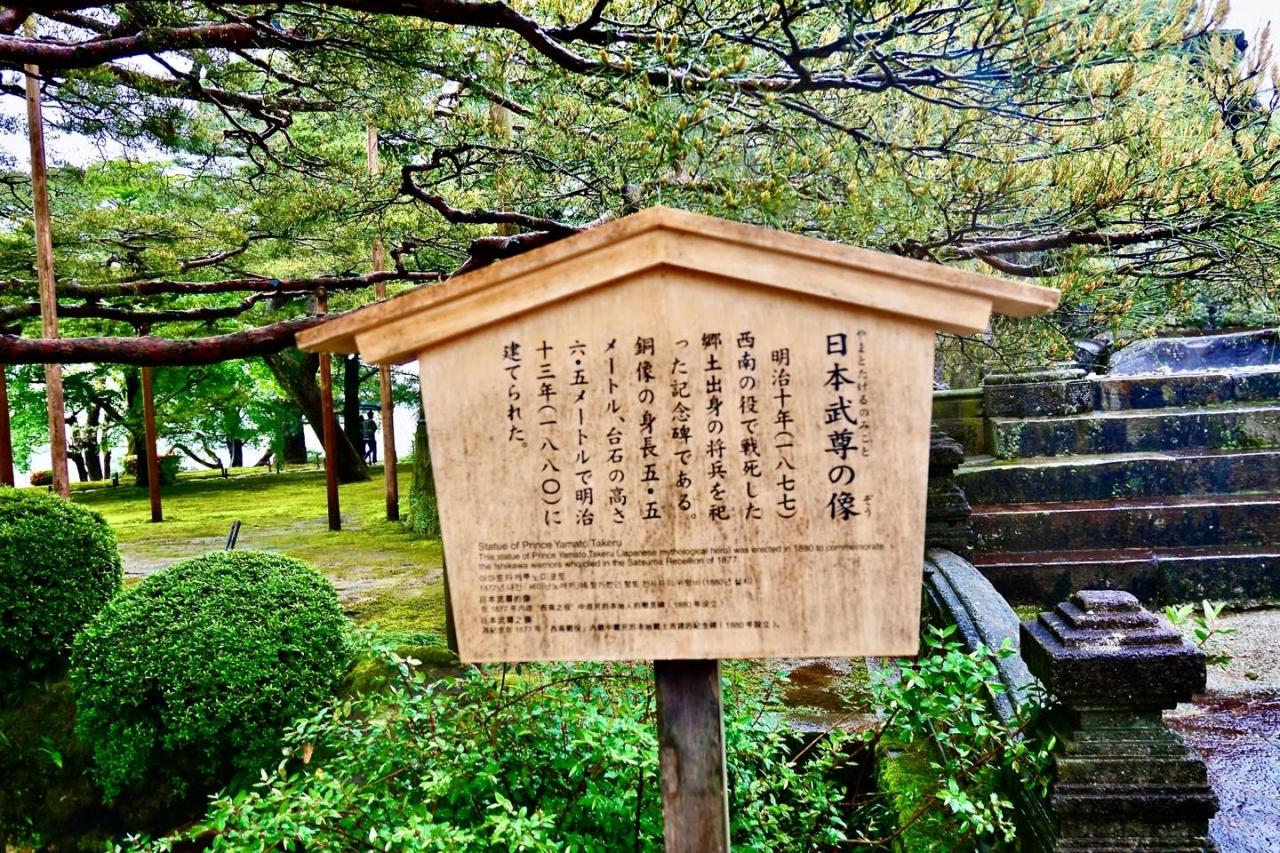 日本武尊の像
やまとたけるのみこと ぞう
明治十年(一八七七)
西南の役で戦死した
郷土出身の将兵を祀
った記念碑である。
銅像の身長五・五
メートル、台石の高さ
六・五メートルで明治
十三年(一八八〇)に
建てられた。
Statue of Prince Yamato Takeru
This statue of Prince Yamato Takeru (Japanese mythological hero) was erected in 1880 to commemorate
the Ishikawa warriors who died in the Satsuma Rebellion of 1877.
日本武尊的像
在 1877 年内战 "西南之役" 中
日本武尊之像
為紀念在 1877 年 "西南戰役" 內戰中